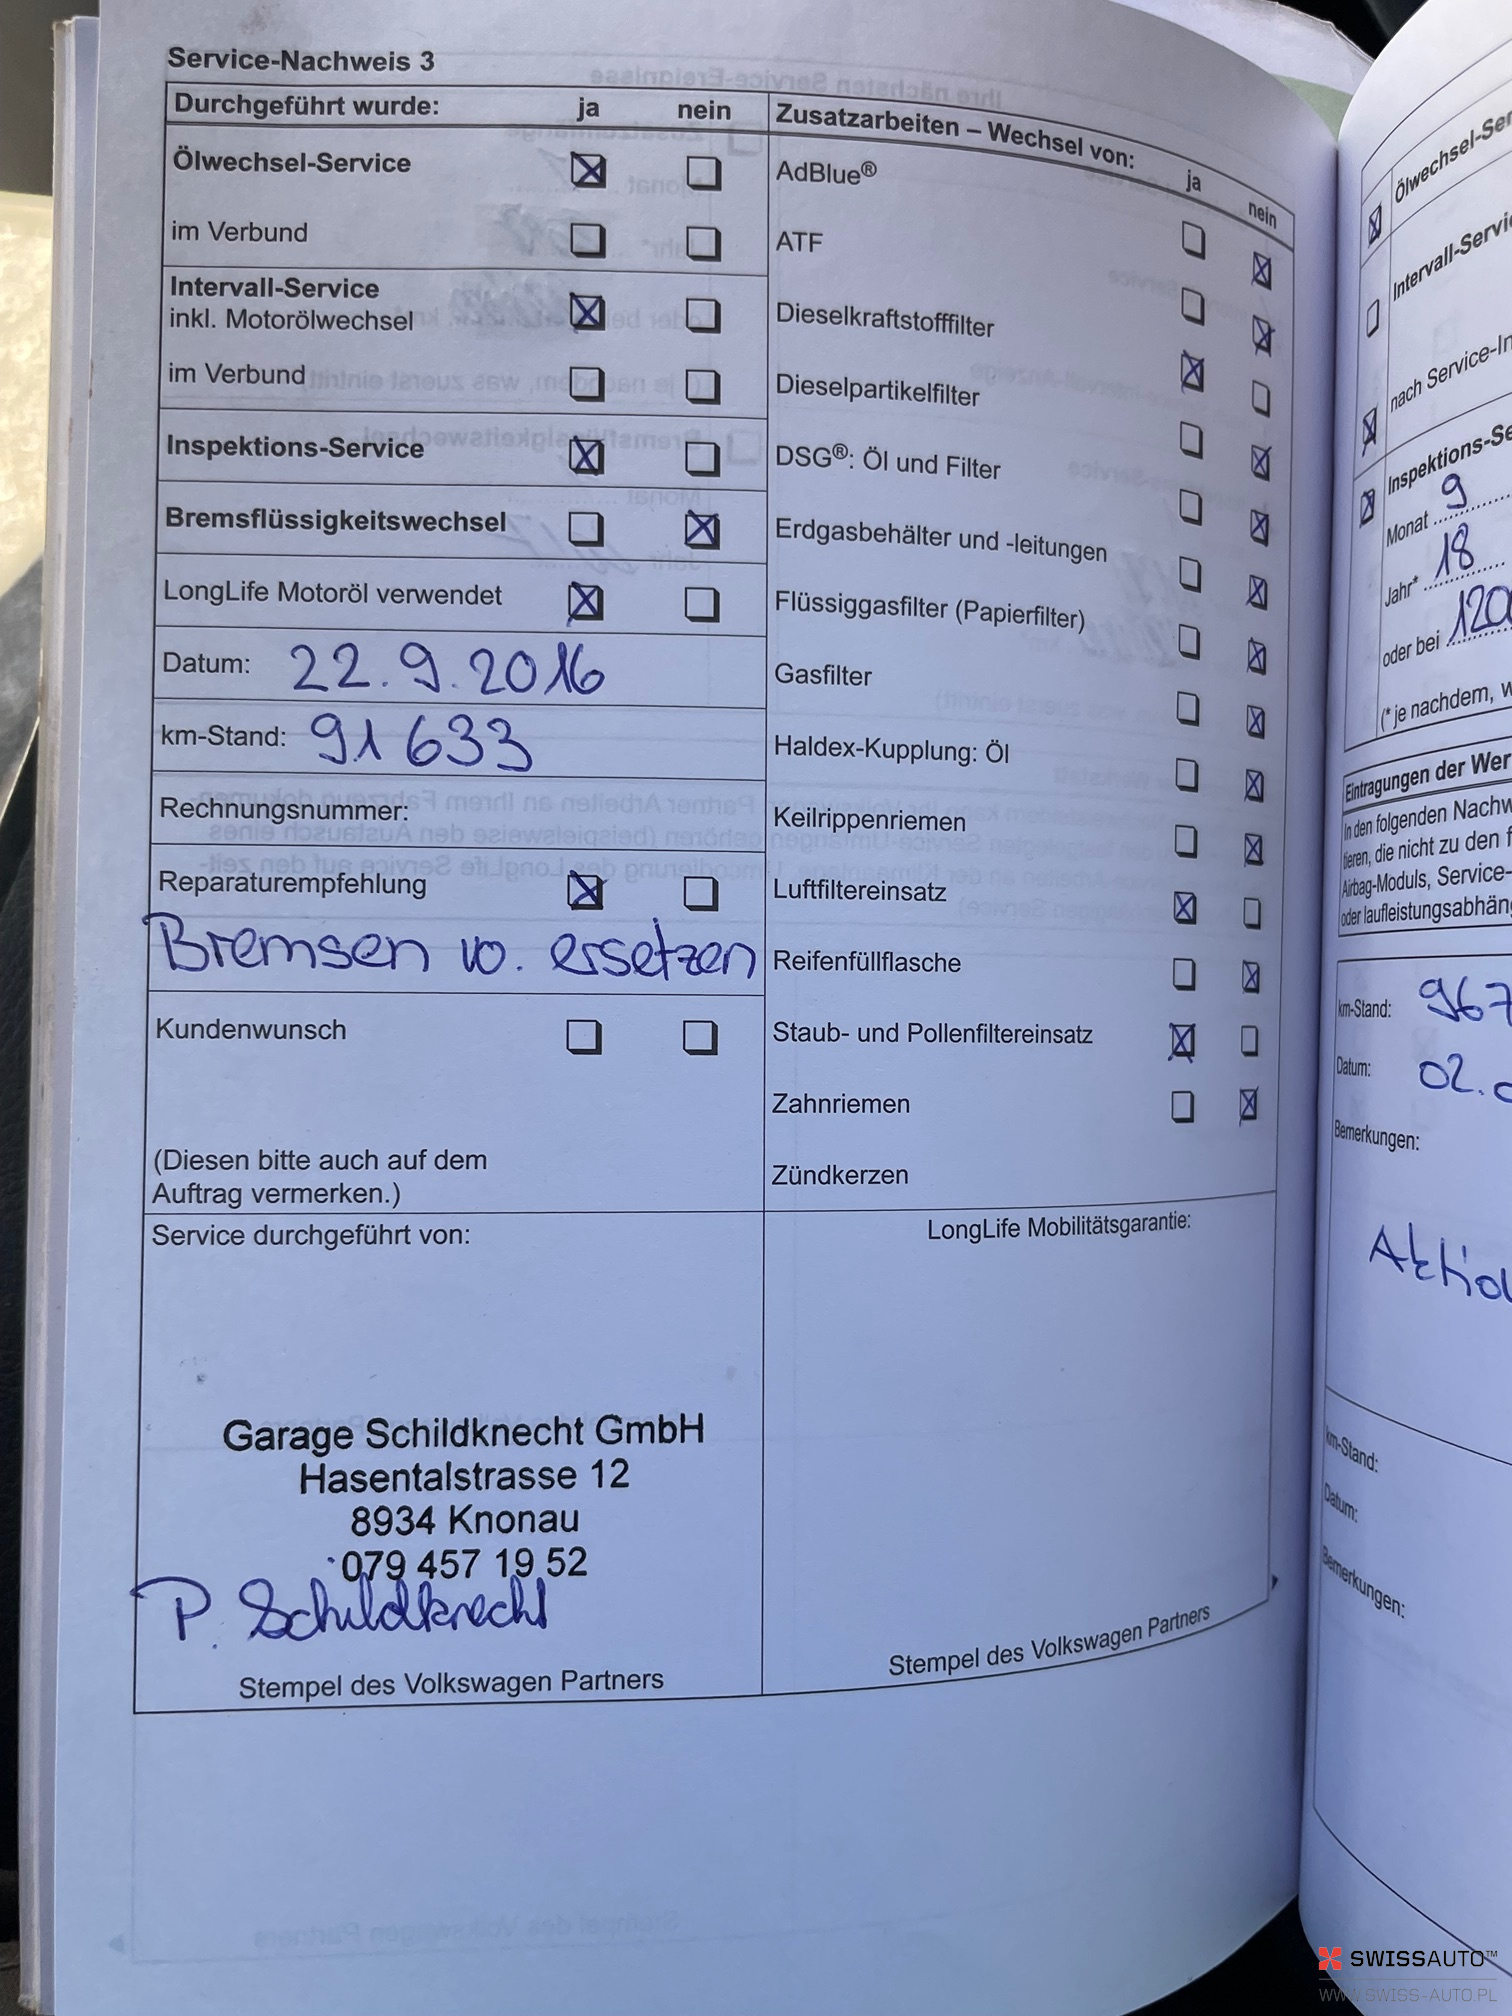 Service-Nachweis 3
Durchgeführt wurde: ja nein
Ölwechsel-Service
im Verbund
Intervall-Service
inkl. Motorölwechsel
im Verbund
Inspektions-Service
Bremsflüssigkeitswechsel
LongLife Motoröl verwendet
Datum: 22.9.2016
km-Stand: 91633
Rechnungsnummer:
Reparaturempfehlung
Bremsen vo. ersetzen
Kundenwunsch
(Diesen bitte auch auf dem
Auftrag vermerken.)
Service durchgeführt von:
Garage Schildknecht GmbH
Hasentalstrasse 12
8934 Knonau
079 457 19 52
P. Schildknecht
Stempel des Volkswagen Partners
Zusatzarbeiten – Wechsel von:
ja nein
AdBlue®
ATF
Dieselkraftstofffilter
Dieselpartikelfilter
DSG®: Öl und Filter
Erdgasbehälter und -leitungen
Flüssiggasfilter (Papierfilter)
Gasfilter
Haldex-Kupplung: Öl
Keilrippenriemen
Luftfiltereinsatz
Reifenfüllflasche
Staub- und Pollenfiltereinsatz
Zahnriemen
Zündkerzen
LongLife Mobilitätsgarantie:
Stempel des Volkswagen Partners
Ölwechsel-Ser
Intervall-Servi
nach Service-In
Inspektions-Se
Monat 9
Jahr* 18
oder bei 120
(* je nachdem, w
Eintragungen der Wer
In den folgenden Nachw
tieren, die nicht zu den f
Airbag-Moduls, Service-
oder laufleistungsabhän
km-Stand: 967
Datum: 02.0
Bemerkungen:
Aktio
km-Stand:
Datum:
Bemerkungen:
SWISSAUTO™
WWW.SWISS-AUTO.PL